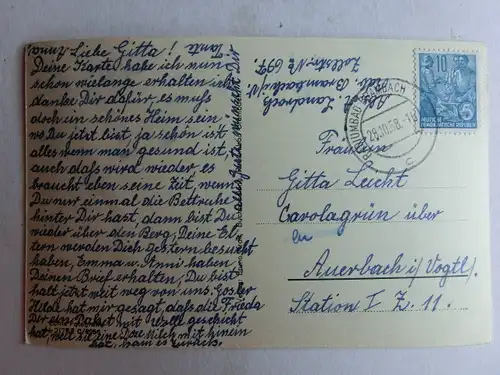 Liebe Gitta!
Deine Karte habe ich nun
schon wielange erhalten ich
danke Dir dafür es muß
doch ein schönes Heim sein
wo Du jetzt bist, ja schön ist
alles wenn man gesund ist,
auch daß wird wieder, es
braucht eben seine Zeit, wenn
Du nur einmal die Bettruhe
hinter Dir hast, dann bist Du
wieder über den Berg, Deine El-
tern werden Dich gestern besucht
haben, Emma u. Anni haben
Deinen Brief erhalten, Du bist
halt jetzt weit weg von uns.
Hilde hat mir gesagt, daß die Frieda
Dir ein Paket mit geschickt
hat, weil sie eine Dose Milch mit hinein
hat, kam es zurück.
alles Gute wünscht Dir
Tante
Anna
Abs. Landrock
Rdb. Brambach i/V.
Zollstr. No 697.
RADIUMBAD BRAMBACH
29.10.58.
c
10
DEUTSCHE
DEMOKRATISCHE REPUBLIK
5
Fräulein
Gitta Leicht
Carolagrün über
in
Auerbach i/Vogtl.
Station I Z. 11.